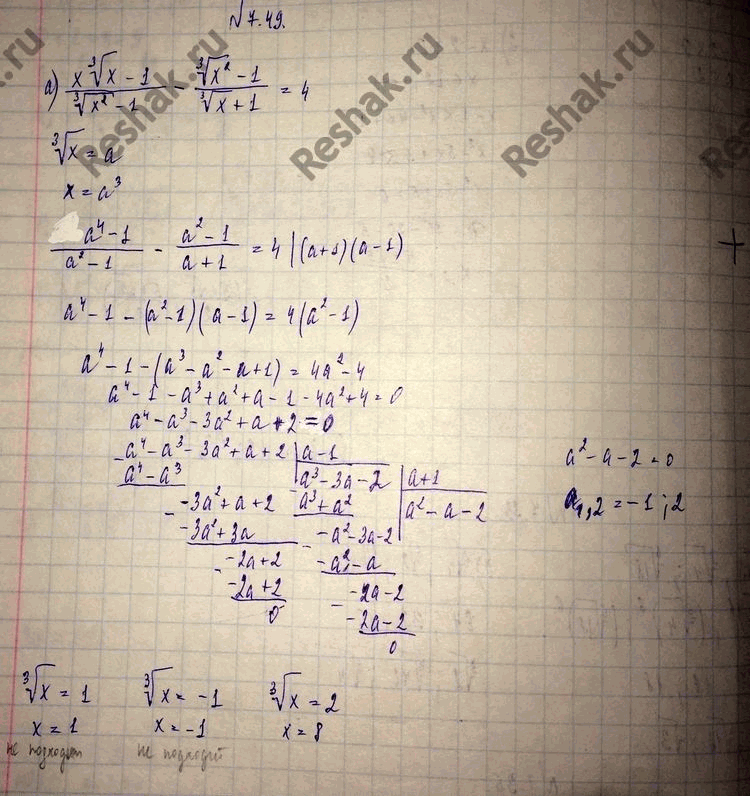 № 7.49.
а) (x∛x - 1)/(∛x² - 1) - (∛x² - 1)/(∛x + 1) = 4
∛x = a
x = a³
(a⁴ - 1)/(a² - 1) - (a² - 1)/(a + 1) = 4 | (a+1)(a-1)
a⁴ - 1 - (a² - 1)(a - 1) = 4(a² - 1)
a⁴ - 1 - (a³ - a² - a + 1) = 4a² - 4
a⁴ - 1 - a³ + a² + a - 1 - 4a² + 4 = 0
a⁴ - a³ - 3a² + a + 2 = 0
a⁴ - a³ - 3a² + a + 2 | a - 1
a⁴ - a³
a³ - 3a - 2 | a + 1
-3a² + a + 2
a³ + a²
a² - a - 2
-3a² + 3a
-a² - 3a - 2
-2a + 2
-a² - a
-2a + 2
-2a - 2
0
-2a - 2
0
a² - a - 2 = 0
a₁,₂ = -1 ; 2
∛x = 1 ∛x = -1 ∛x = 2
x = 1 x = -1 x = 8
не подходит не подходит
Reshak.ru
Reshak.ru
Reshak.ru